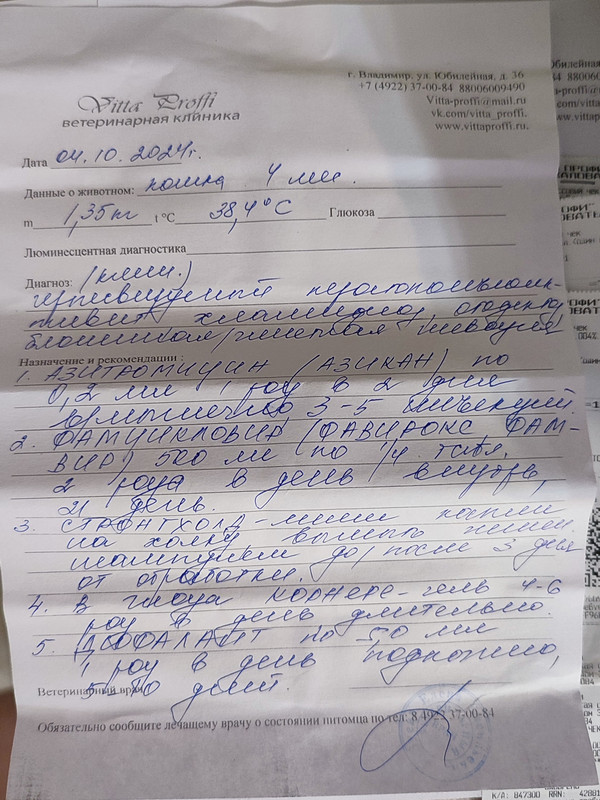 г. Владимир, ул. Юбилейная, д. 36
+7 (4922) 37-00-84 88006009490
Vitta-proffi@mail.ru
vk.com/vitta_proffi.
www.vittaproffi.ru.
Vitta Proffi
ветеринарная клиника
Дата 04.10.2024г.
Данные о животном: кошка 4 мес.
m 1,35 кг t °C 38,4°C Глюкоза
Люминесцентная диагностика
Диагноз: (клин.)
герпесвирусный кератоконъюнк-
тивит, хламидиоз, отодектоз,
блошиная/клещевая инвазия
Назначение и рекомендации :
1. АЗИТРОМИЦИН (АЗИКАН) по
0,2 мл 1 раз в 2 дня
3-5 инъекций.
2. ФАМЦИКЛОВИР (ФАВИРОКС ФАМ-
ВИР) 500 мг по 1/4 табл.
2 раза в день внутрь,
21 день.
3. СТРОНГХОЛД - капли
на холку, вымыть
шампунем до/после 3 дня
от обработки.
4. В глаза КОРНЕРЕ-гель 4-6
раз в день длительно.
5. ДЮФАЛАЙТ по 50 мл
1 раз в день подкожно,
5 дней.
Ветеринарный врач
Обязательно сообщите лечащему врачу о состоянии питомца по тел: 8 4922 37-00-84
К/А: 847300 RRN: